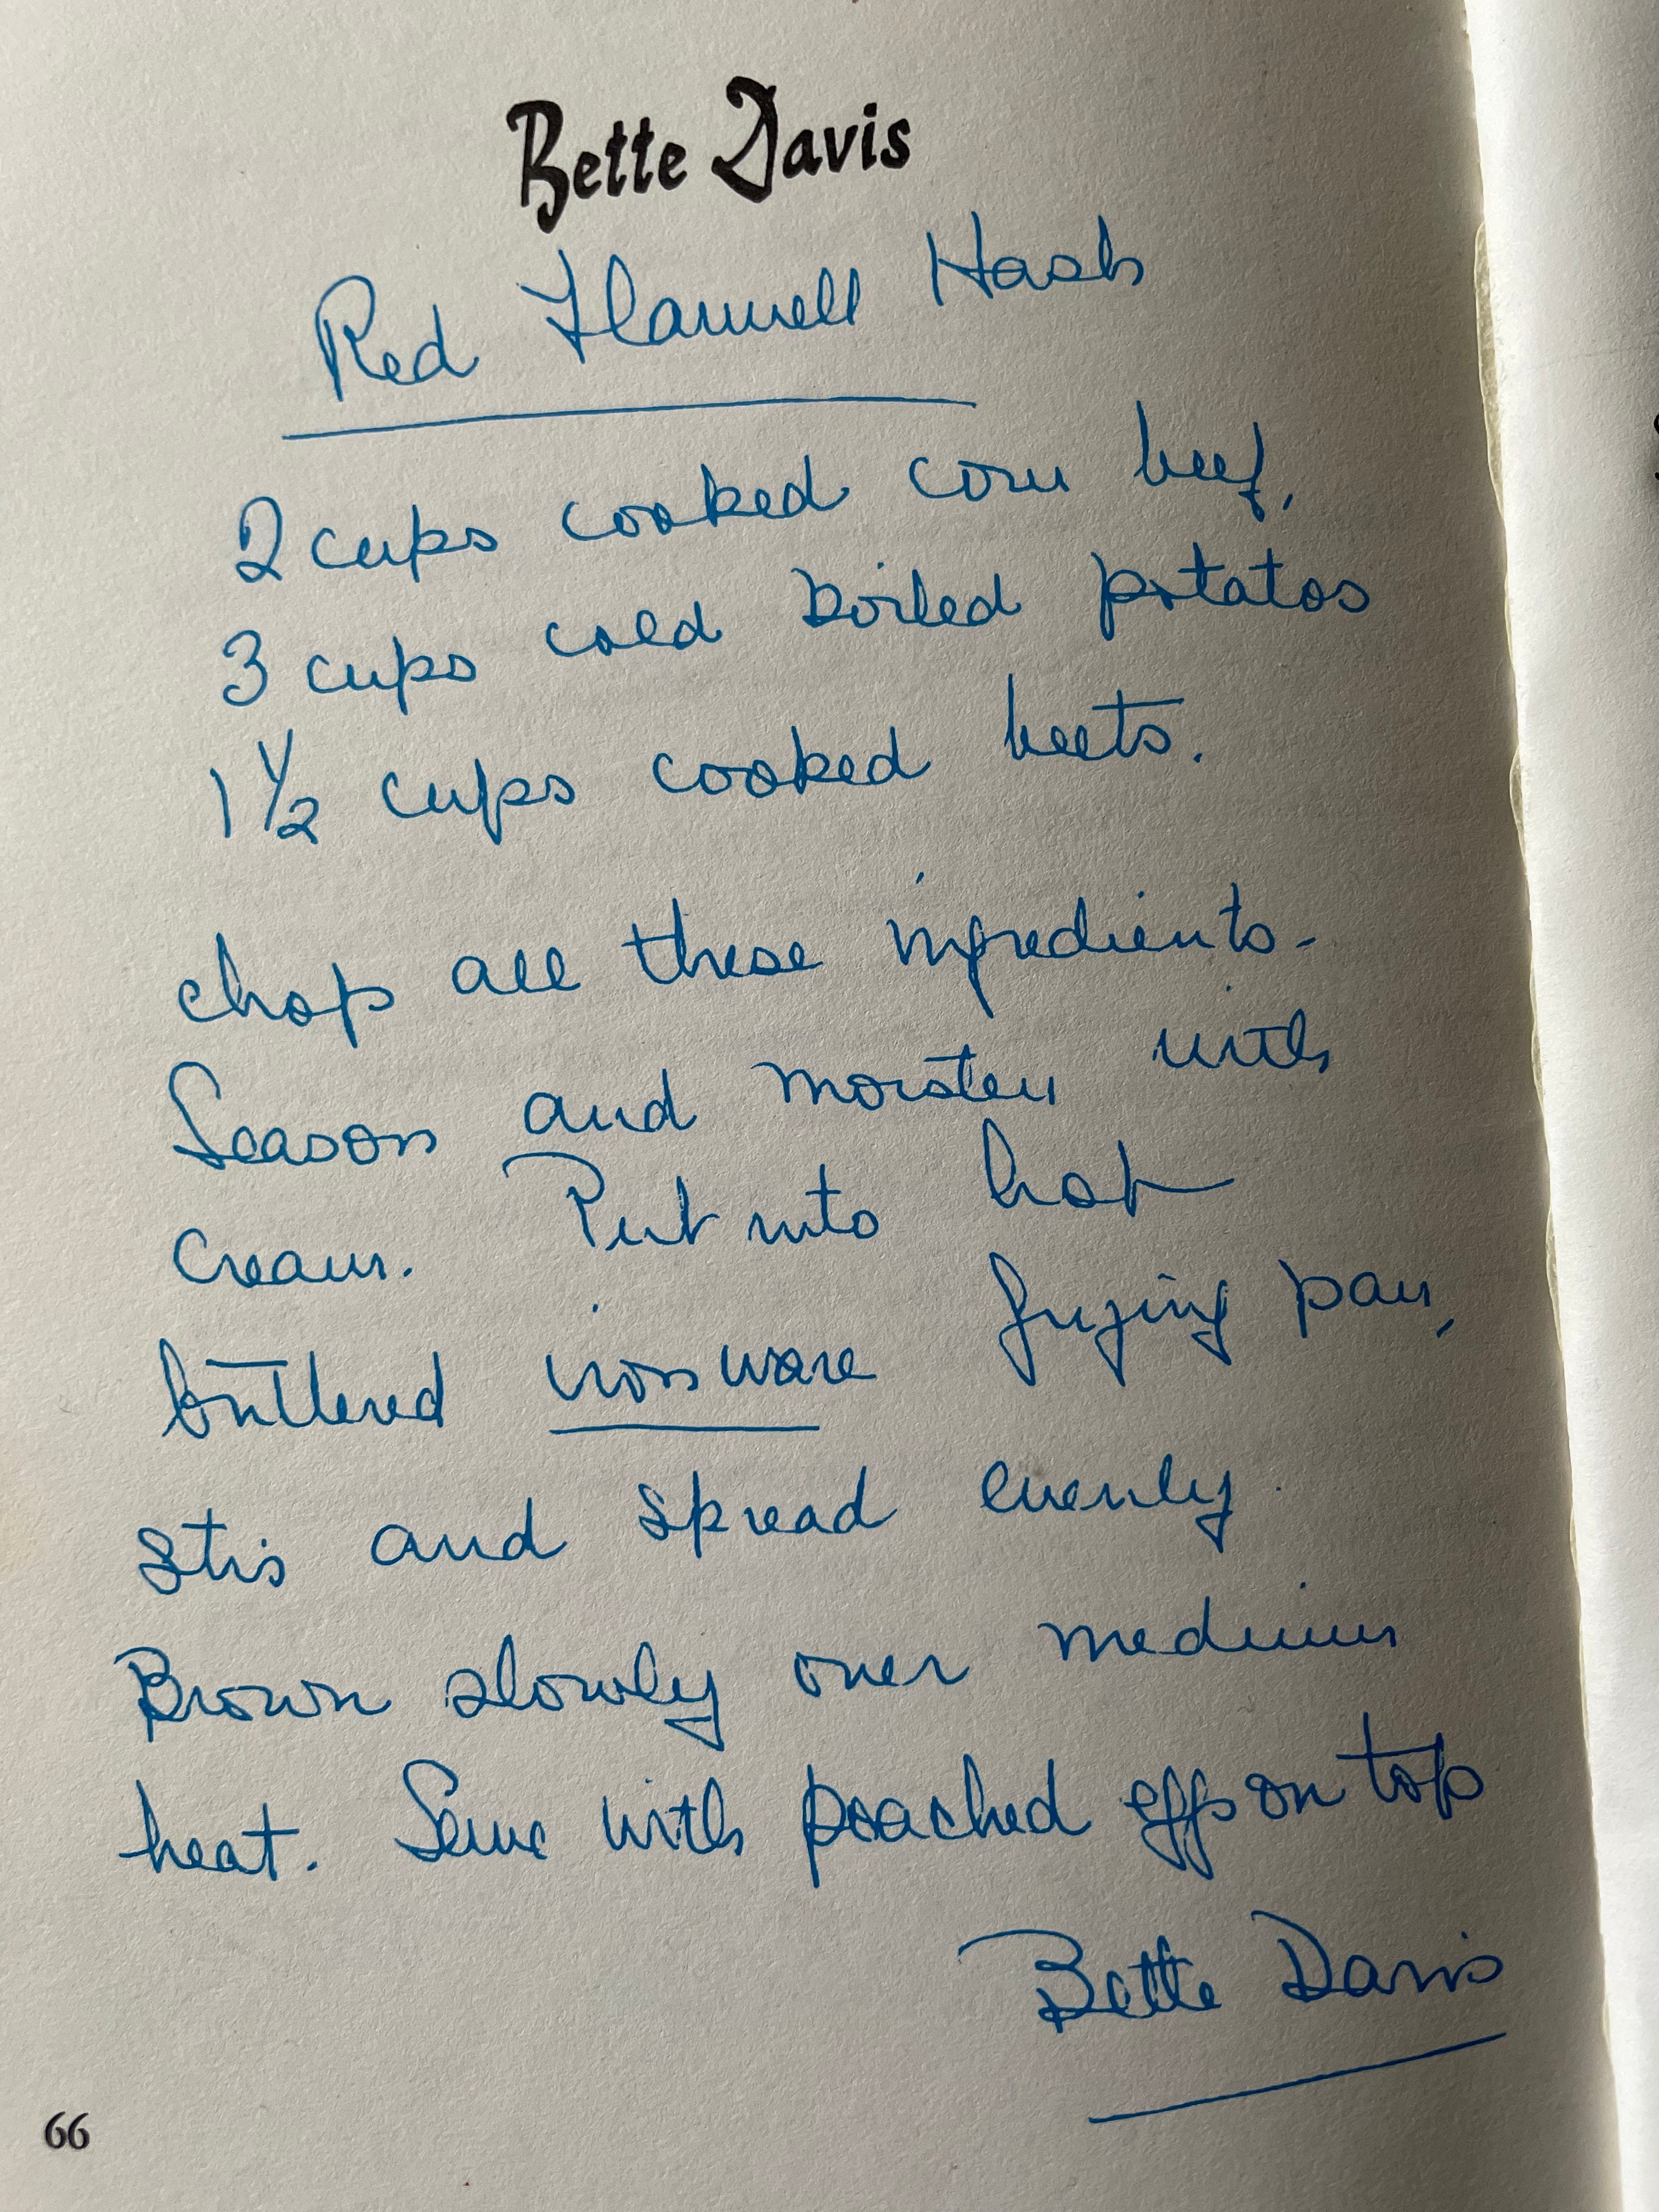 Bette Davis
Red Flannell Hash
2 cups cooked corn beef,
3 cups cold boiled potatos
1 1/2 cups cooked beets.
chop all these ingredients -
Season and moisten with
cream. Put into hot
buttered ironware frying pan,
stir and spread evenly.
Brown slowly over medium
heat. Serve with poached eggs on top
Bette Davis
66